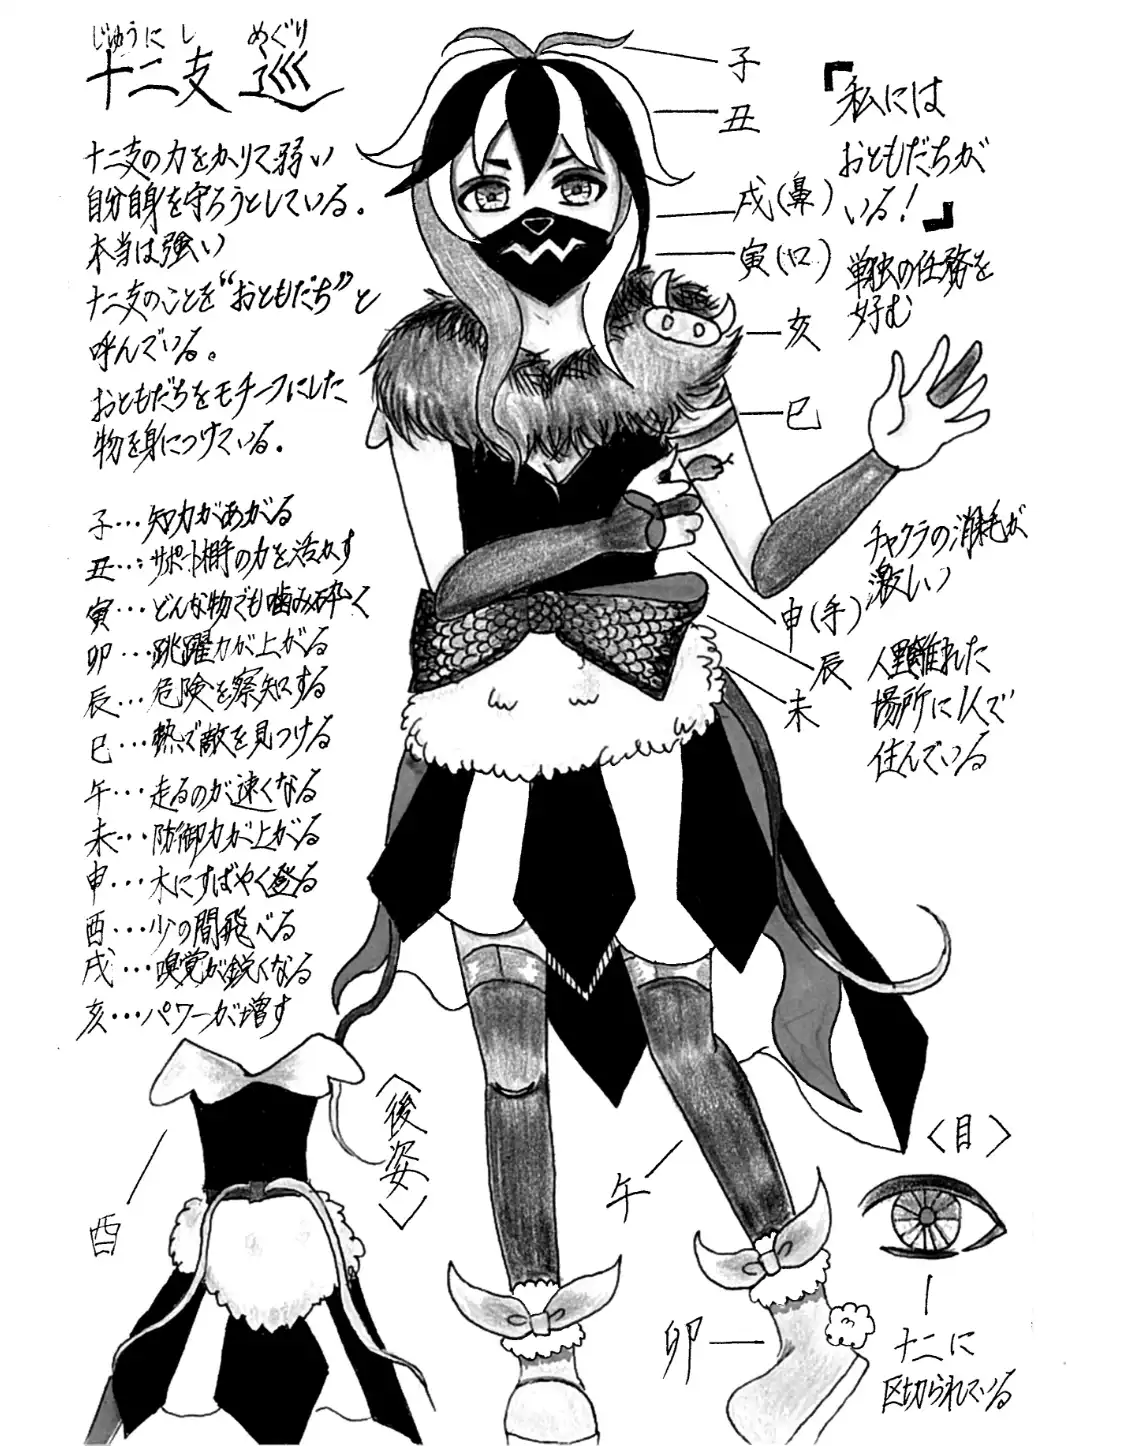 じゅうにし めぐり
十二支 巡
十二支の力をかりて弱い
自分自身を守ろうとしている。
本当は強い
十二支のことを“おともだち”と
呼んでいる。
おともだちをモチーフにした
物を身につけている。
子…知力があがる
丑…サポート相手の力を活かす
寅…どんな物でも噛み砕く
卯…跳躍力が上がる
辰…危険を察知する
巳…熱で敵を見つける
午…走るのが速くなる
未…防御力が上がる
申…木にすばやく登る
酉…少の間飛べる
戌…嗅覚が鋭くなる
亥…パワーが増す
子
丑
戌(鼻)
寅(口)
亥
巳
申(手)
辰
未
午
卯
『私には
おともだちが
いる!』
単独の任務を
好む
チャクラの消耗が
激しい
人里離れた
場所に1人で
住んでいる
〈後姿〉
酉
〈目〉
十二に
区切られている